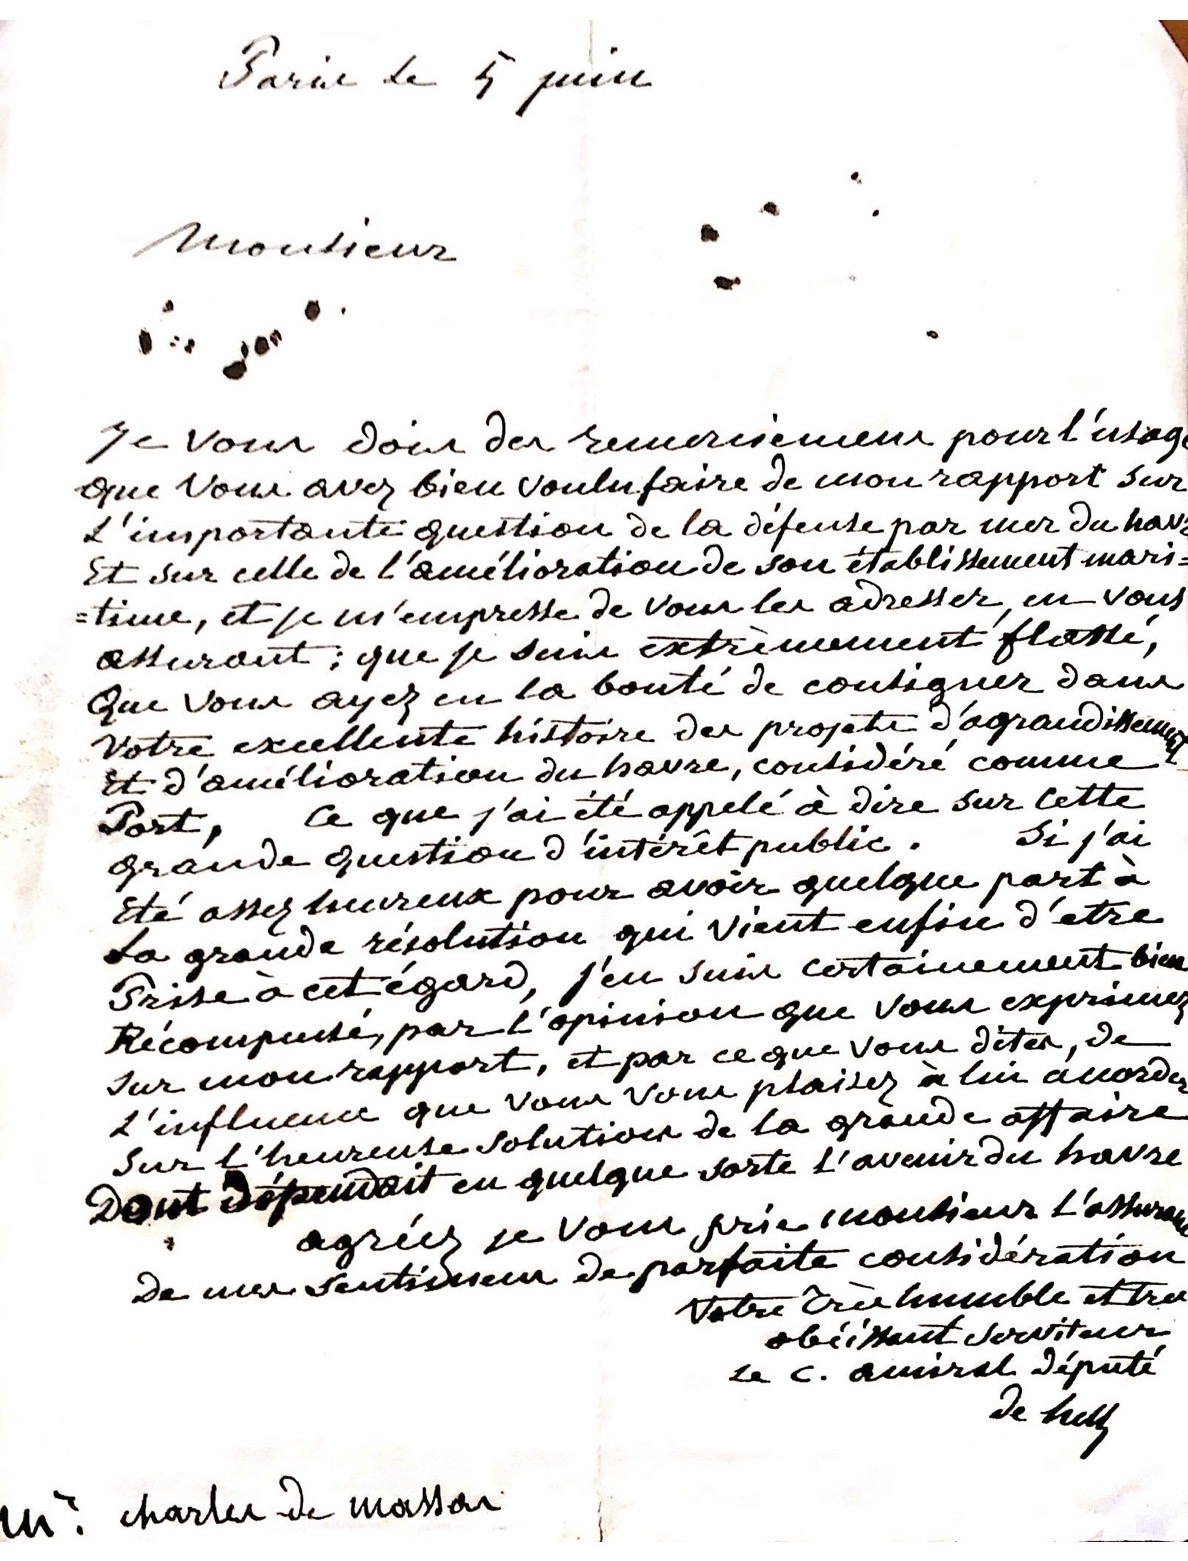 Paris le 5 juin
Monsieur
Je vous dois des remercisemens pour l'usage
que vous avez bien voulu faire de mon rapport sur
L'importante question de la défense par mer du havre
Et sur celle de l'amélioration de son établissement mari=
=time, et je m'empresse de vous les adresser, en vous
assurant ; que je suis extrèmement flatté,
Que vous ayez eu la bonté de consigner dans
Votre excellente histoire des projets d'agrandissement
Et d'amélioration du havre, considéré comme
Port, Ce que j'ai été appelé à dire sur cette
grande question d'intérêt public. Si j'ai
Eté assez heureux pour avoir quelque part à
La grande résolution qui vient enfin d'etre
Prise à cet égard, j'en suis certainement bien
Récompensé, par l'opinion que vous exprimez
sur mon rapport, et par ce que vous dites, de
L'influence que vous vous plaisez à lui accorder
sur l'heureuse solution de la grande affaire
Dont dépendait en quelque sorte l'avenir du havre
agréez je vous prie monsieur l'assurance
De mes sentimens de parfaite considération
Votre très humble et tres
obéissant serviteur
Le C. amiral député
de hell
Mr. charles de massas